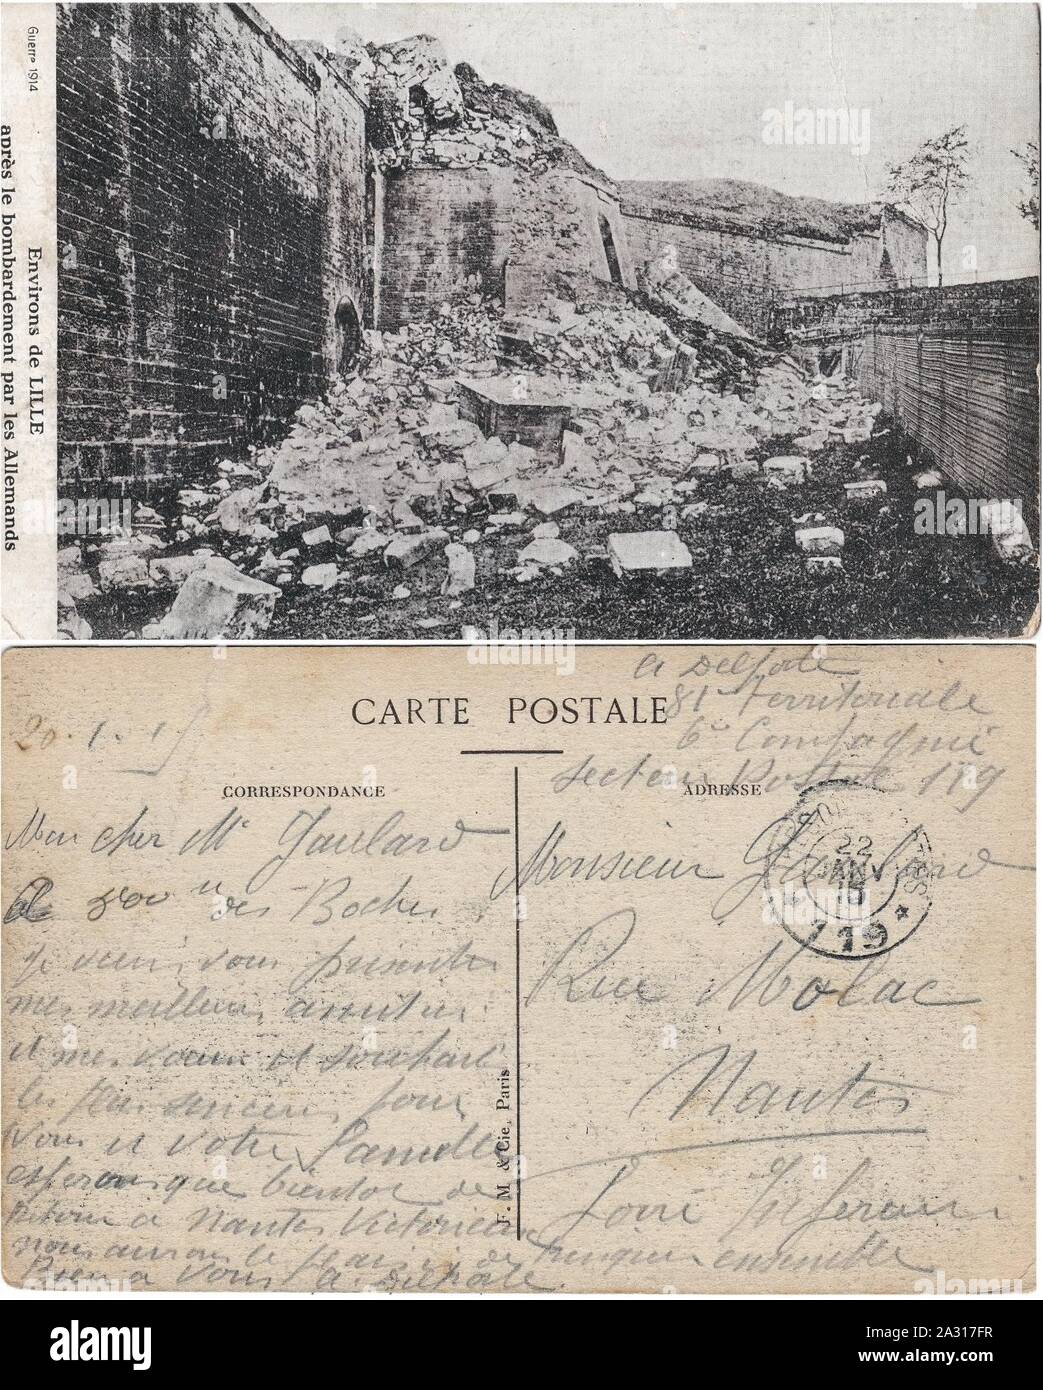 Guerre 1914
Environs de LILLE
après le bombardement par les Allemands
alamy
A Delporte
81e Territoriale
6e Compagnie
Secteur Postal 119
CARTE POSTALE
20.1.15
CORRESPONDANCE
ADRESSE
22
JANV
15
119
Mon cher Mr Gaulard
A 800 m des Boches
je viens vous présenter
mes meilleures amitiés
et mes vœux et souhaits
les plus sinceres pour
vous et votre famille
esperons que bientot de
retour a Nantes Victorieux
nous aurons le plaisir de trinquer ensemble
Bien a vous A. Delporte.
Monsieur Gaulard
Rue Molac
Nantes
Loire Inferieure
F. M. & Cie, Paris
alamy
Image ID: 2A317FR
www.alamy.com